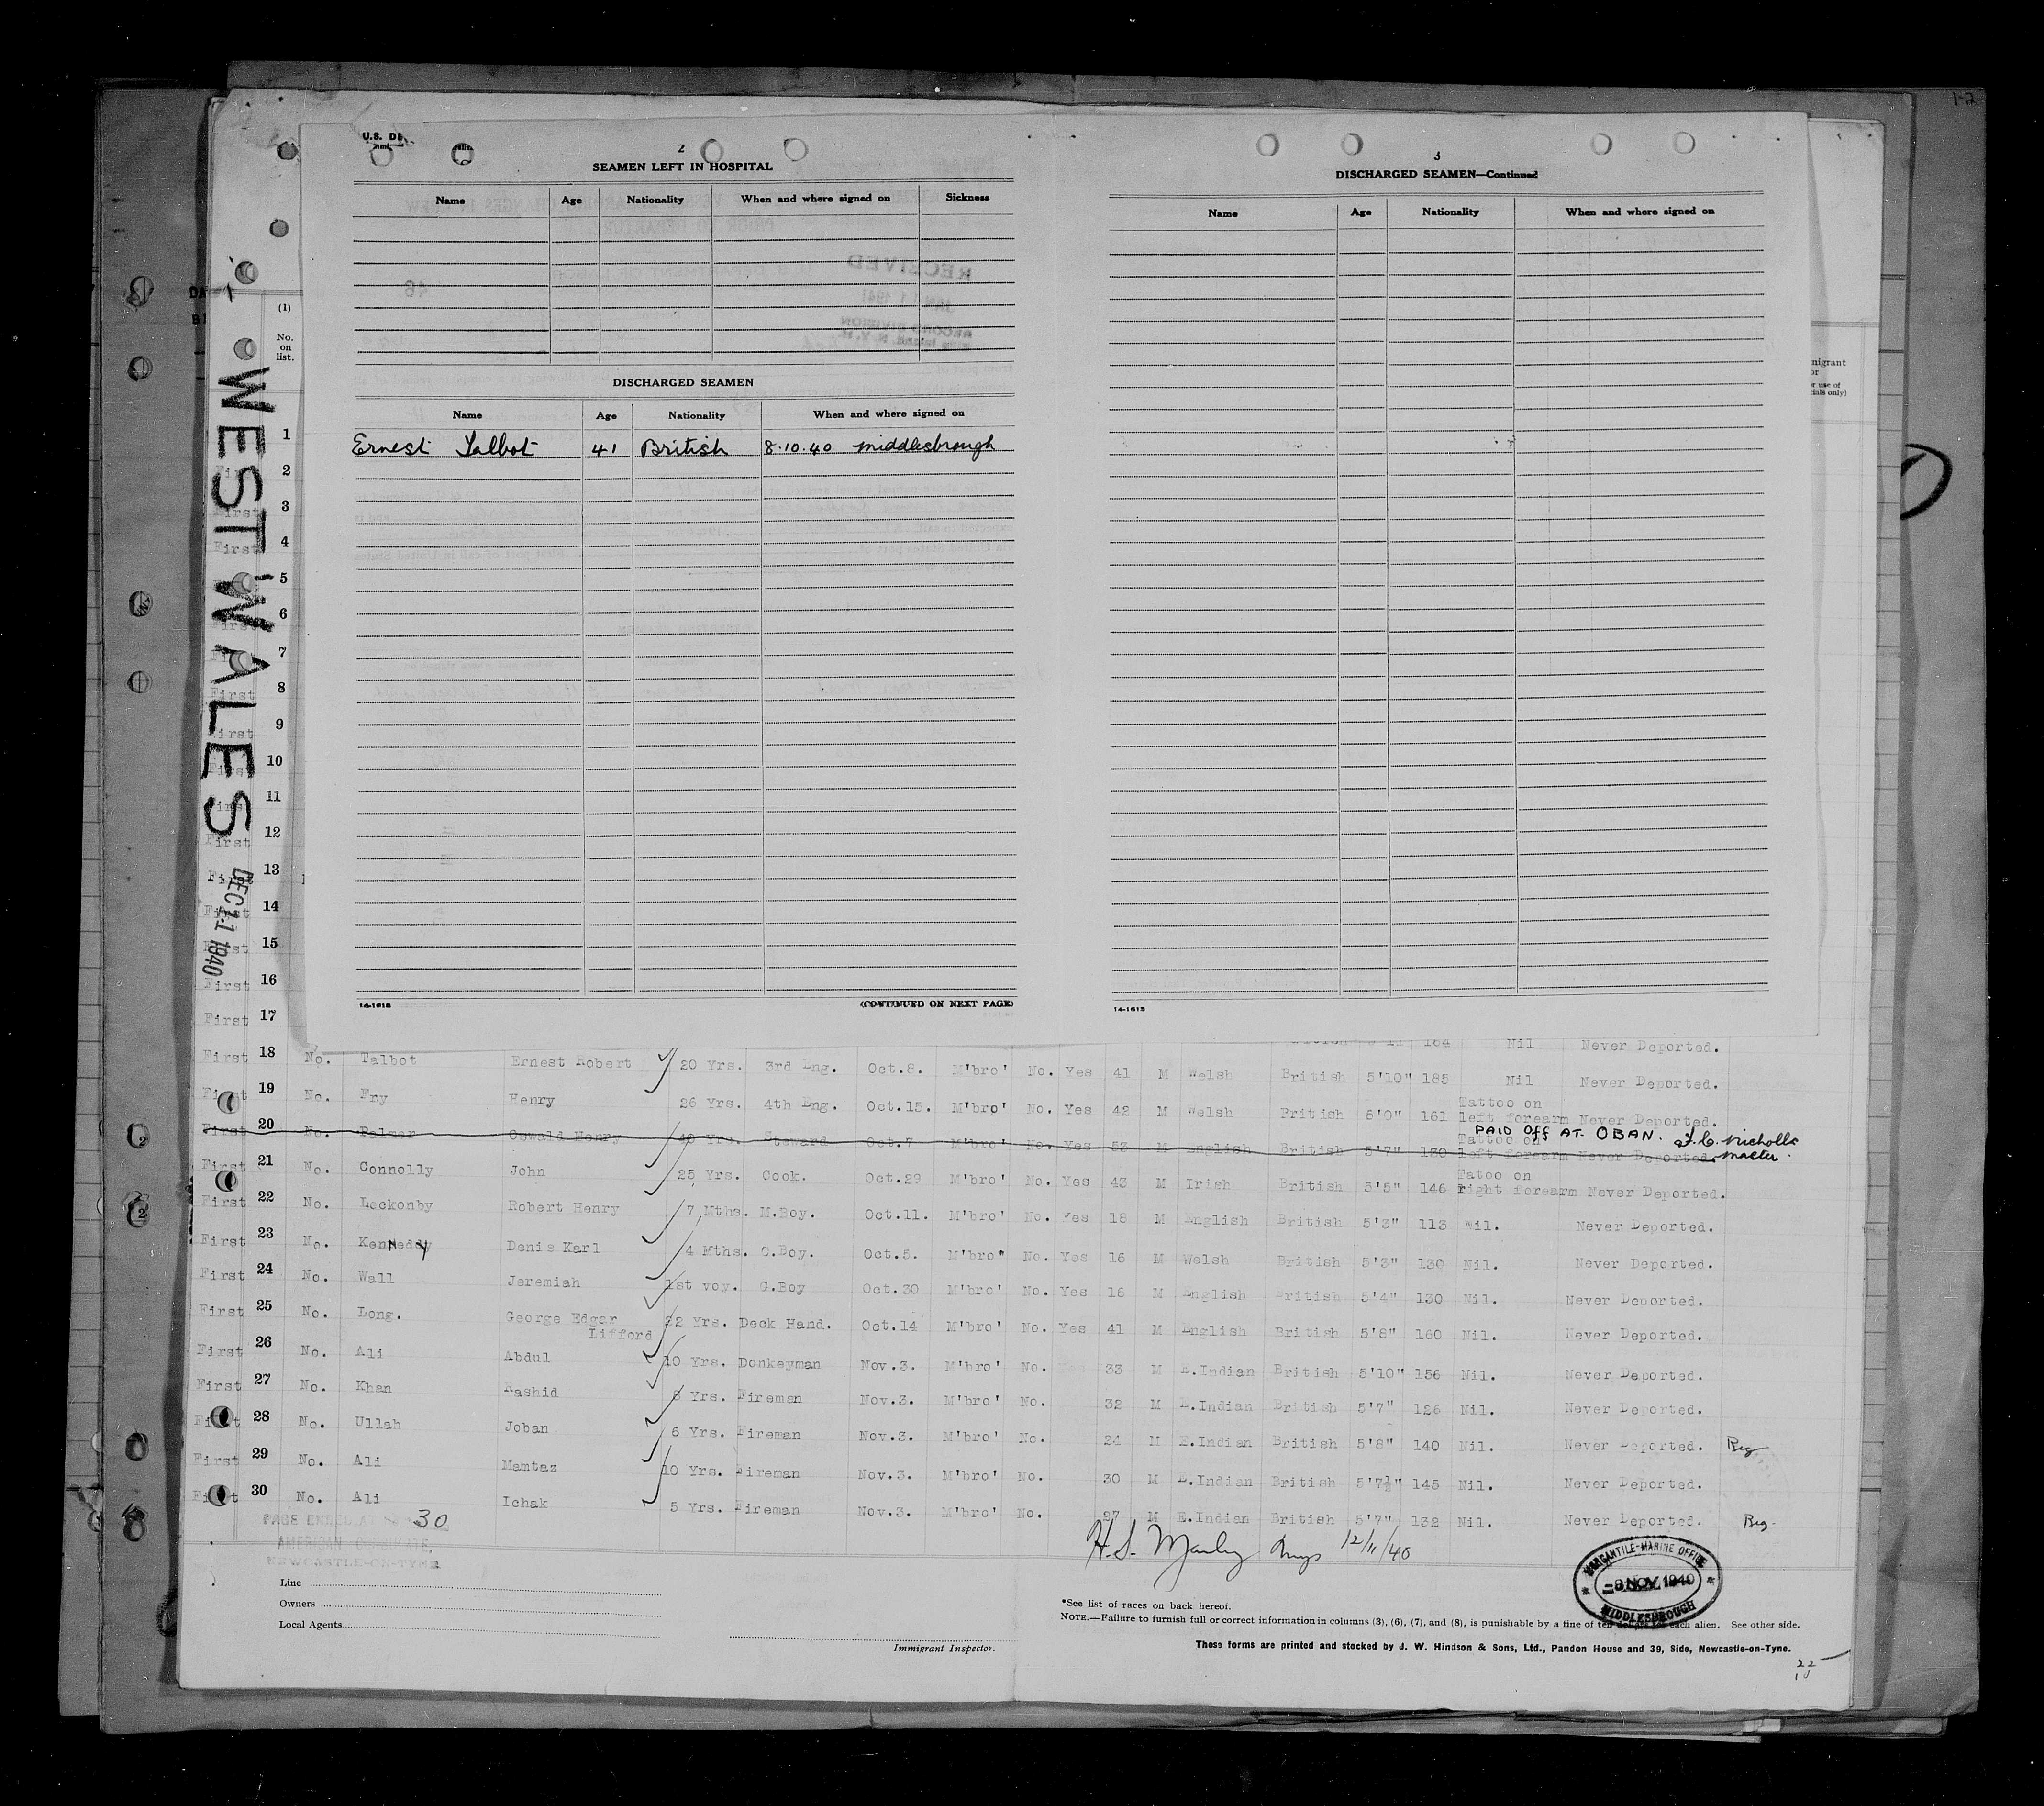 1-2
U.S. DE
2
SEAMEN LEFT IN HOSPITAL
Name Age Nationality When and where signed on Sickness
DISCHARGED SEAMEN
Name Age Nationality When and where signed on
Ernest Talbot 41 British 8.10.40 Middlesbrough
14-1618 (CONTINUED ON NEXT PAGE)
3
DISCHARGED SEAMEN—Continued
Name Age Nationality When and where signed on
14-1618
WEST WALES
DEC 11 1940
(1)
No.
on
list.
1
2
3
4
5
6
7
8
9
10
11
12
13
14
15
16
First 17
164 Nil Never Deported.
First 18 No. Talbot Ernest Robert 20 Yrs. 3rd Eng. Oct.8. M'bro' No. Yes 41 M Welsh British 5'10" 185 Nil Never Deported.
First 19 No. Fry Henry 26 Yrs. 4th Eng. Oct.15. M'bro' No. Yes 42 M Welsh British 6'0" 161 Tattoo on left forearm Never Deported.
PAID OFF AT OBAN. Nicholls Master.
First 20 No. Palmer Oswald Henry 40 Yrs. Steward Oct.7 M'bro' No. Yes 53 M English British 5'7" Tattoo on left forearm Never Deported.
First 21 No. Connolly John 25 Yrs. Cook. Oct.29 M'bro' No. Yes 43 M Irish British 5'5" 146 Tatoo on right forearm Never Deported.
First 22 No. Leckonby Robert Henry 7 Mths. M.Boy. Oct.11. M'bro' No. Yes 18 M English British 5'3" 113 Nil. Never Deported.
First 23 No. Kennedy Denis Karl 4 Mths. C.Boy. Oct.5. M'bro" No. Yes 16 M Welsh British 5'3" 130 Nil. Never Deported.
First 24 No. Wall Jeremiah 1st voy. G.Boy Oct.30 M'bro' No. Yes 16 M English British 5'4" 130 Nil. Never Deported.
First 25 No. Long. George Edgar Lifford 22 Yrs. Deck Hand. Oct.14 M'bro' No. Yes 41 M English British 5'8" 160 Nil. Never Deported.
First 26 No. Ali Abdul 10 Yrs. Donkeyman Nov.3. M'bro' No. 33 M E.Indian British 5'10" 156 Nil. Never Deported.
First 27 No. Khan Rashid 8 Yrs. Fireman Nov.3. M'bro' No. 32 M E.Indian British 5'7" 126 Nil. Never Deported.
First 28 No. Ullah Joban 6 Yrs. Fireman Nov.3. M'bro' No. 24 M E.Indian British 5'8" 140 Nil. Never Deported. Reg
First 29 No. Ali Mamtaz 10 Yrs. Fireman Nov.3. M'bro' No. 30 M E.Indian British 5'7½" 145 Nil. Never Deported.
First 30 No. Ali Ichak 5 Yrs. Fireman Nov.3. M'bro' No. 27 M E.Indian British 5'7" 132 Nil. Never Deported. Reg.
PAGE ENDED AT 30
AMERICAN CONSULATE,
NEWCASTLE-ON-TYNE
H.S. Manley Insp 12/11/40
MERCANTILE-MARINE OFFICE
-8 NOV. 1940
MIDDLESBROUGH
Line
Owners
Local Agents
Immigrant Inspector.
*See list of races on back hereof.
NOTE.—Failure to furnish full or correct information in columns (3), (6), (7), and (8), is punishable by a fine of ten dollars for each alien. See other side.
These forms are printed and stocked by J. W. Hindson & Sons, Ltd., Pandon House and 39, Side, Newcastle-on-Tyne.